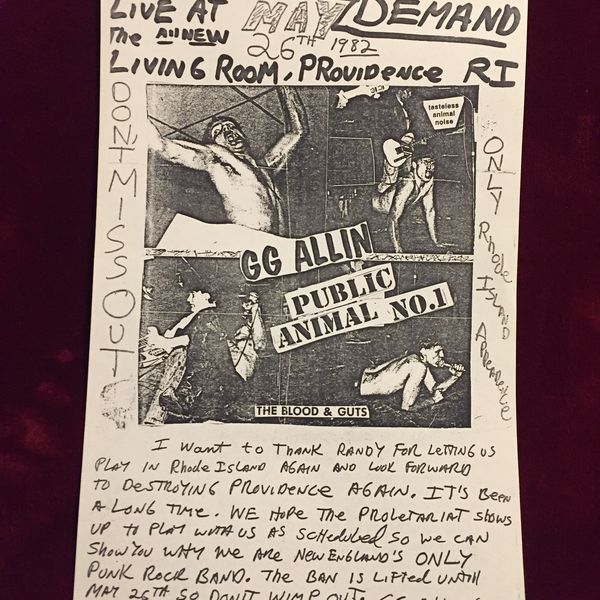 LIVE AT MAY DEMAND
The All NEW 26TH 1982
LIVING ROOM, PROVIDENCE RI
DONT MISS OUT
tasteless
animal
noise
ONLY Rhode ISLAND APPEARENCE
GG ALLIN
PUBLIC
ANIMAL NO.1
THE BLOOD & GUTS
I WANT to THANK RANDY FOR LETTING US
PLAY IN Rhode ISLAND AGAIN AND LOOK FORWARD
TO DESTROYING PROVIDENCE AGAIN. IT'S BEEN
A LONG TIME. WE HOPE THE PROLETARIAT SHOWS
UP TO PLAY WITH US AS SCHEDULED SO WE CAN
SHOW YOU WHY WE ARE NEW ENGLAND'S ONLY
PUNK ROCK BAND. THE BAN IS LIFTED UNTIL
MAY 26TH SO DON'T WIMP OUT.